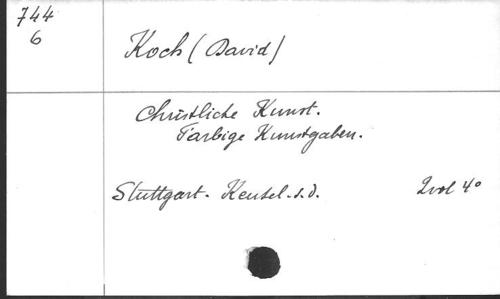 744
6
Koch (David)
Christliche Kunst.
Farbige Kunstgaben.
Stuttgart. Keutel. s.d.
2 vol 4º